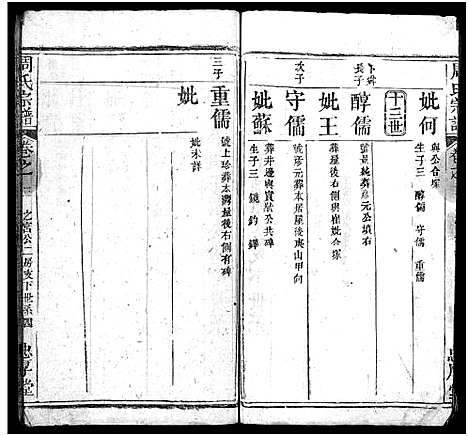 妣何
與公合塚
生子三 醇儒 守儒 重儒
十三世
卜舜長子
醇儒
號並純葬彥元公墳右
妣王
葬屋後右側與崔妣合塚
次子
守儒
號彥元葬本居屋後庚山甲向
妣蘇
葬井邊與賓臬公共碑
生子三 鏡 鈞 鐸
三子
重儒
號上珍葬本灣屋後右側有碑
妣
妣未詳
周氏宗譜
卷之一
之富公二房支下世系圖
忠厚堂